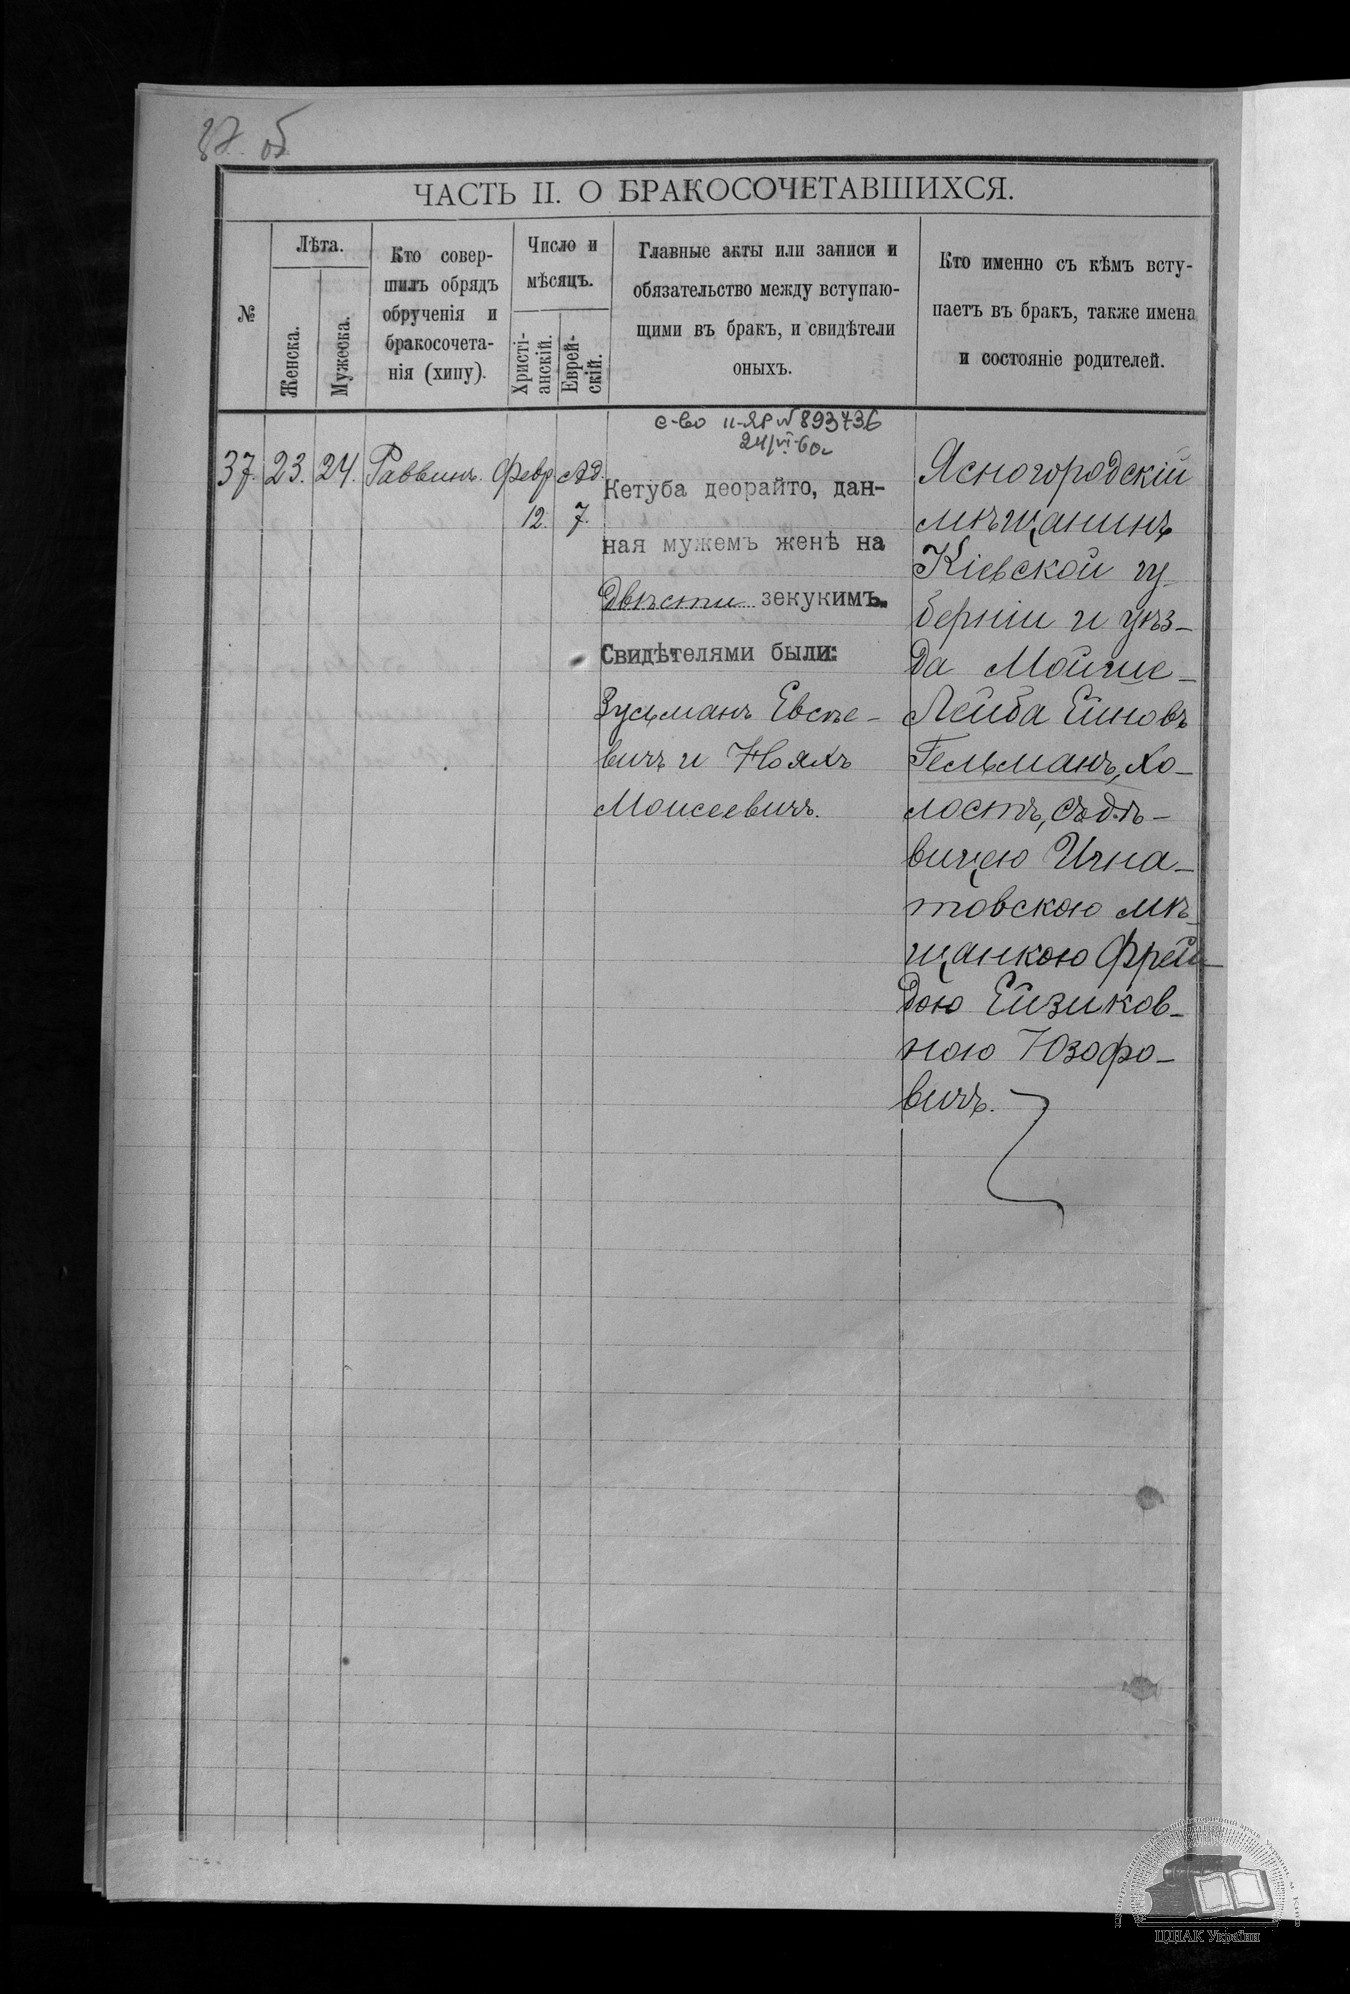 87 об
ЧАСТЬ II. О БРАКОСОЧЕТАВШИХСЯ.
№
Лѣта.
Женска.
Мужеска.
Кто совер-
шилъ обрядъ
обрученія и
бракосочета-
нія (хипу).
Число и
мѣсяцъ.
Христі-
анскій.
Еврей-
скій.
Главные акты или записи и
обязательство между вступаю-
щими въ бракъ, и свидѣтели
оныхъ.
Кто именно съ кѣмъ всту-
паетъ въ бракъ, также имена
и состояніе родителей.
37. 23. 24. Раввинъ. Февр. Ад.
12. 7.
с-во II-ЯР № 893736
24/VI-60г.
Кетуба деорайто, дан-
ная мужемъ женѣ на
Двѣсти зекукимъ.
Свидѣтелями были:
Зусьманъ Евсѣе-
вичъ и Ноахъ
Моисеевичъ.
Ясногородскій
мѣщанинъ
Кіевской гу-
берніи и уѣз-
да Мойше-
Лейба Ейновъ
Гельманъ, хо-
лостъ, съ дѣ-
вицею Игна-
товскою мѣ-
щанкою Фрей-
дою Ейзиков-
ною Юзофо-
вичъ.
ЦДІАК України